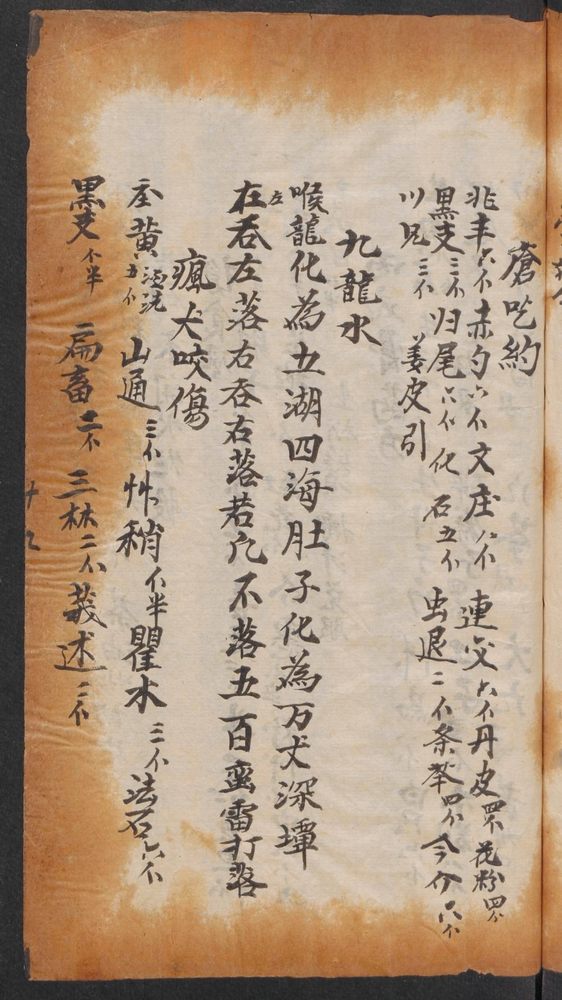 瘡吃約
非丰六个赤勺六个文庄八个連交六个丹皮四个花粉四个
黑支三个归尾六个化石五个虫退二个条芩四个今分六个
川見三个 姜皮引
九龍水
喉龍化為五湖四海肚子化為万丈深墰
在吞左落右吞右落若凢不落五百蛮雷打落
左
瘋犬咬傷
至黄五个酒洗山通三个艸稍个半瞿木三个法石六个
黑支个半二扁畜二个三林二个莪述二个